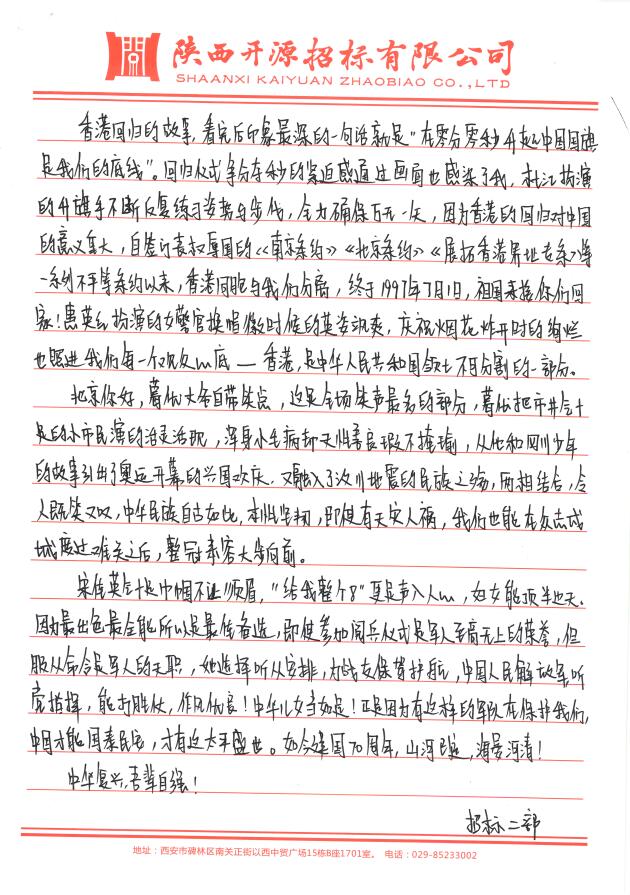 陕西开源招标有限公司
SHAANXI KAIYUAN ZHAOBIAO CO.,LTD
香港回归的故事,看完后印象最深的一句话就是"在零分零秒升起中国国旗
是我们的底线"。回归仪式争分夺秒的紧迫感通过画面也感染了我,杜江扮演
的升旗手不断反复练习姿势与步伐,全力确保万无一失,因为香港的回归对中国
的意义重大,自签订丧权辱国的《南京条约》《北京条约》《展拓香港界址专条》等
一系列不平等条约以来,香港同胞与我们分离,终于1997年7月1日,祖国来接你们回
家!惠英红扮演的女警官换唱徽时候的英姿飒爽,庆祝烟花炸开时的绚烂
也照进我们每一个观众心底——香港,是中华人民共和国领土不可分割的一部分。
北京你好,葛优大爷自带笑点,这是全场笑声最多的部分,葛优把市井气十
足的小市民演的活灵活现,浑身小毛病却天性善良瑕不掩瑜,从他和四川少年
的故事引出了奥运开幕的兴国欢庆,又融入了汶川地震的民族之殇,两相结合,令
人既笑又叹,中华民族自古如此,本性坚韧,即使有天灾人祸,我们也能在众志成
城度过难关之后,整冠肃容大步向前。
宋佳英气十足巾帼不让须眉,"给我整个8"更是声入人心,妇女能顶半边天。
因为最出色最全能所以是最佳备选,即使参加阅兵仪式是军人至高无上的荣誉,但
服从命令是军人的天职,她选择听从安排,为战友保驾护航,中国人民解放军,听
党指挥,能打胜仗,作风优良!中华儿女当如是!正是因为有这样的军队在保护我们,
中国才能国泰民安,才有这太平盛世。如今建国70周年,山河已远,海晏河清!
中华复兴,吾辈自强!
招标二部
地址:西安市碑林区南关正街以西中贸广场15栋B座1701室。 电话:029-85233002